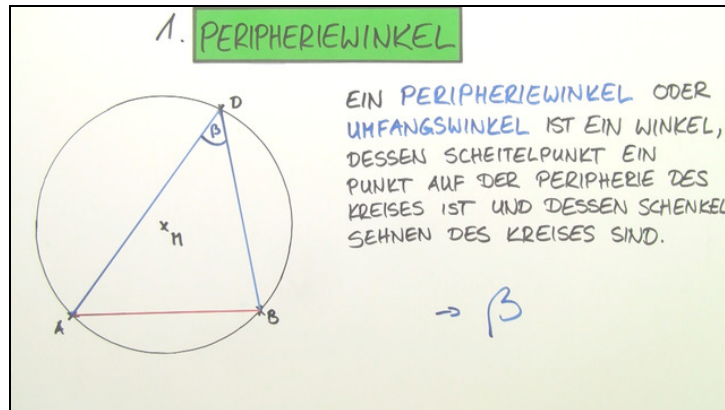 1. PERIPHERIEWINKEL
D
β
M
A
B
EIN PERIPHERIEWINKEL ODER
UMFANGSWINKEL IST EIN WINKEL,
DESSEN SCHEITELPUNKT EIN
PUNKT AUF DER PERIPHERIE DES
KREISES IST UND DESSEN SCHENKEL
SEHNEN DES KREISES SIND.
→ β